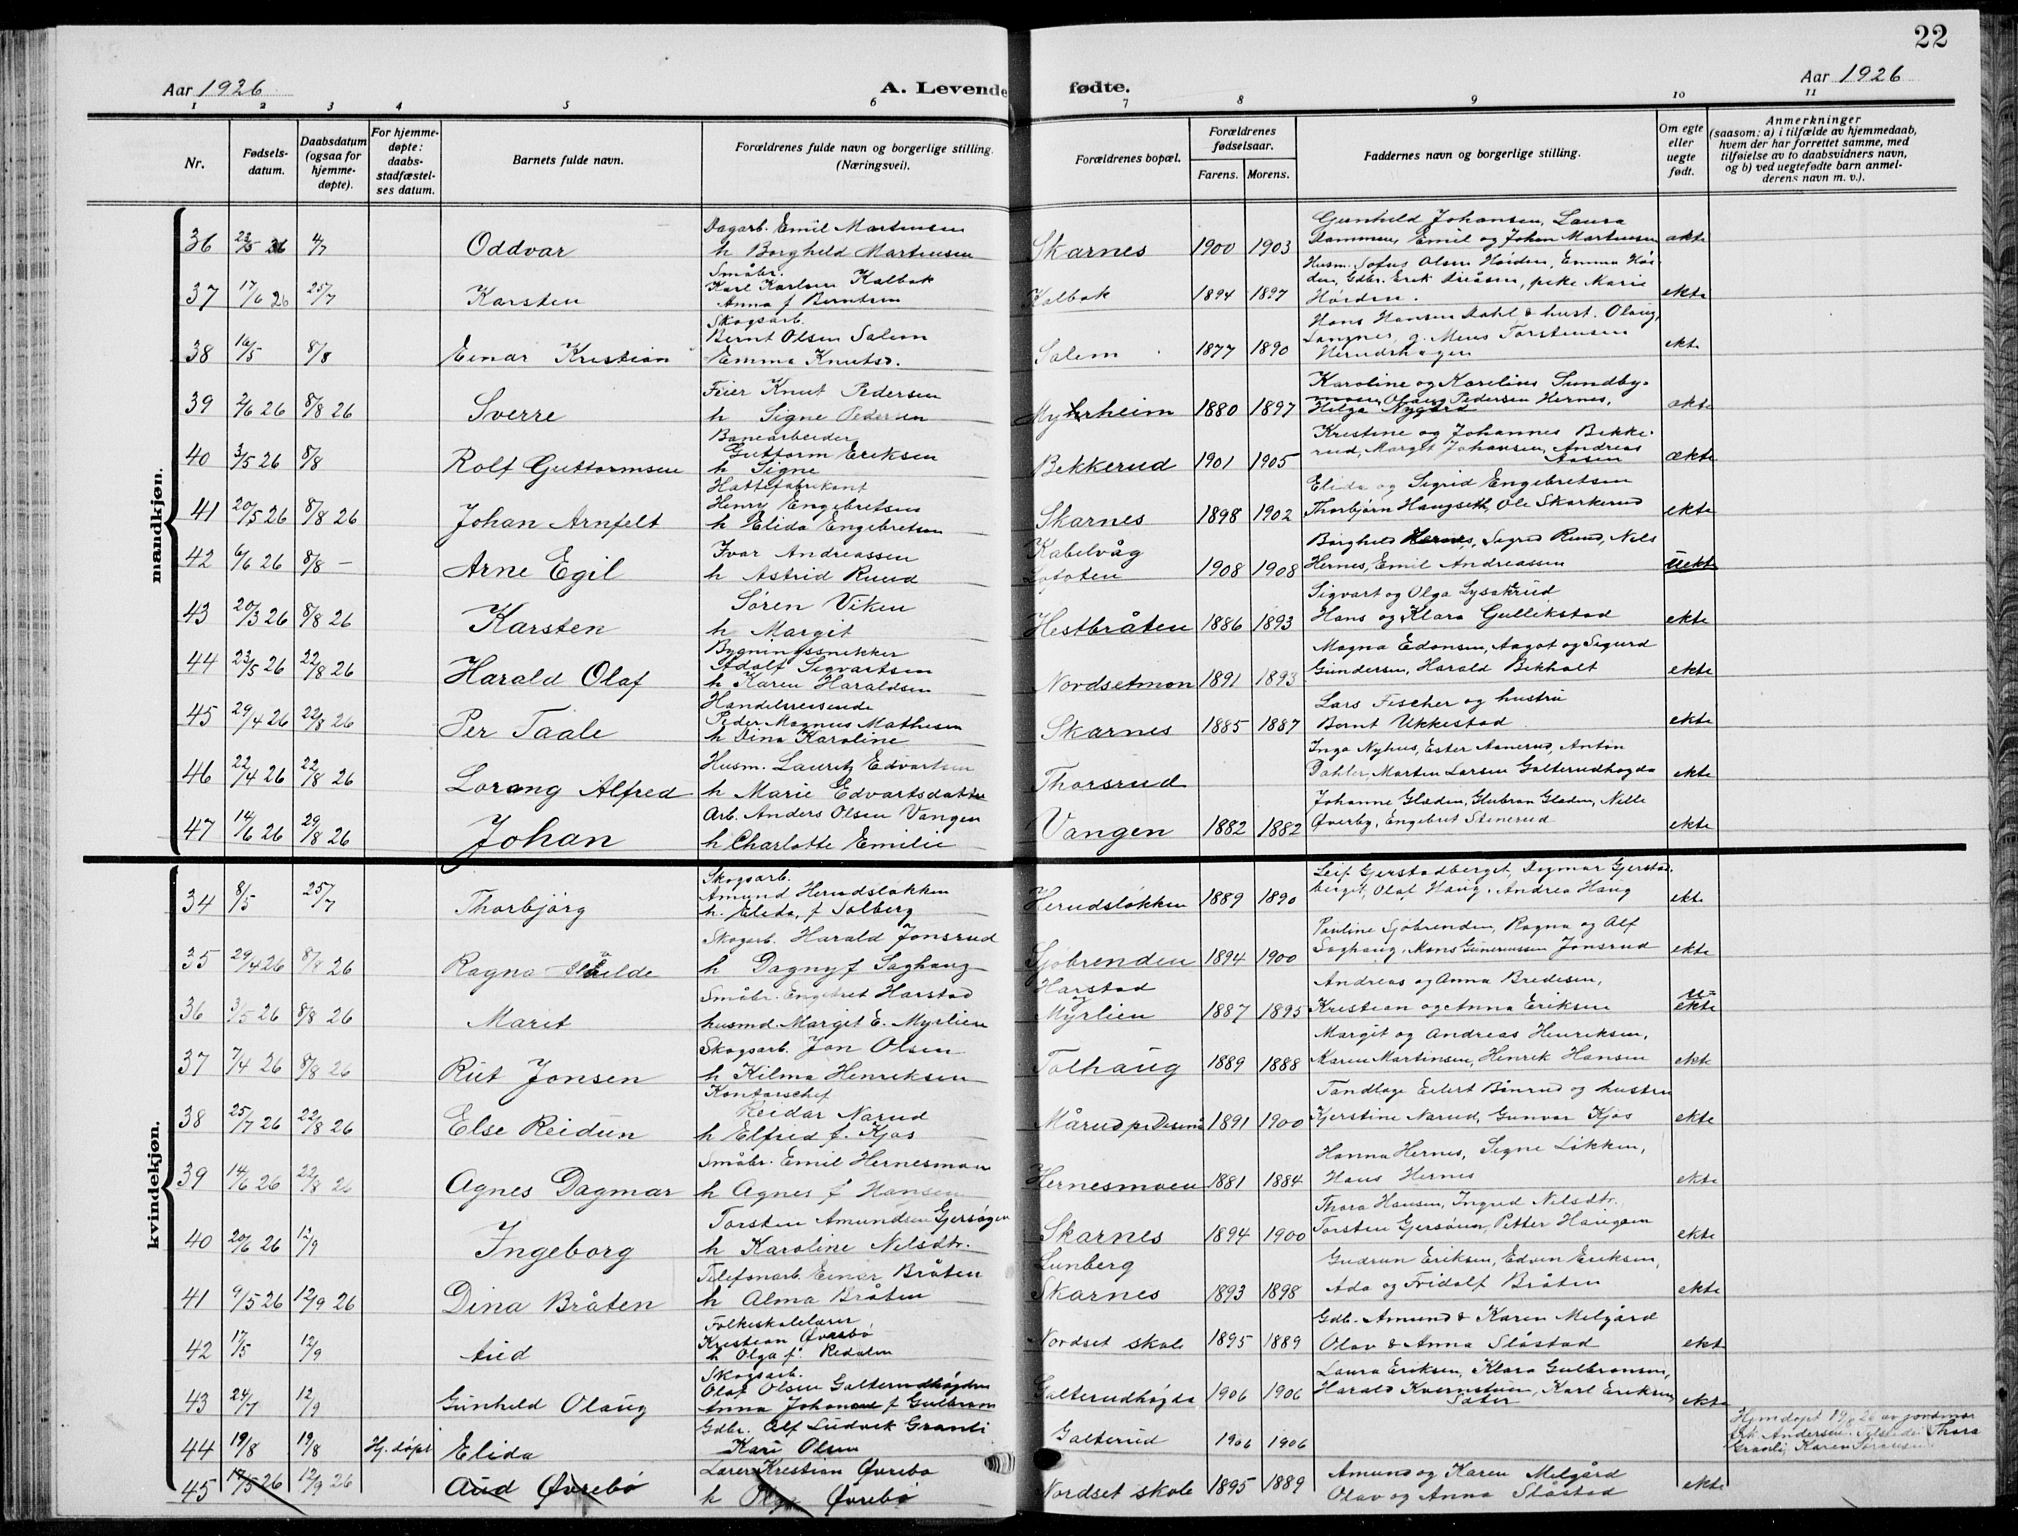 22
Aar 1926
A. Levende fødte.
Aar 1926
1 2 3 4 5 6 7 8 9 10 11
Nr.
Fødsels-
datum.
Daabsdatum
(ogsaa for
hjemme-
døpte).
For hjemme-
døpte:
daabs-
stadfæstel-
ses datum.
Barnets fulde navn.
Forældrenes fulde navn og borgerlige stilling.
(Næringsvei).
Forældrenes bopæl.
Forældrenes
fødselsaar.
Farens. Morens.
Faddernes navn og borgerlige stilling.
Om egte
eller
uegte
født.
Anmerkninger
(saasom: a) i tilfælde av hjemmedaab,
hvem der har forrettet samme, med
tilføielse av to daabsvidners navn,
og b) ved uegtefødte barn anmel-
derens navn m. v.).
mandkjøn.
Dagarb. Emil Martinsen Gunhild Johansen, Laura
36 23/5 26 4/7 Oddvar h Borghild Martinsen Skarnes 1900 1903 Stammen, Emil og Johan Martinsen ekte
Småbr. Husm. Sofus Olsen Høiden, Emma Høi-
37 17/6 26 25/7 Karsten Karl Karlsen Kalbak Kalbak 1894 1897 den, Gdbr. Erik pike Marie ekte
Anna f Berntsen Høiden.
Skogsarb. Hans Hansen Dahl & hust. Olaug,
38 16/5 8/8 Einar Kristian Bernt Olsen Salem Salem 1877 1890 Langnes, g. Mens Torstensen ekte
Emma Knutsd. Herudshagen
Feier Knut Pedersen Karoline og Karelius Sundby-
39 2/6 26 8/8 26 Sverre h Signe Pedersen Myhrheim 1880 1897 moen, Olaug Pedersen Hernes, ekte
Helga Nygård
Banearbeider Kristine og Johannes Bekke-
40 3/5 26 8/8 Rolf Guttormsen Guttorm Eriksen Bekkerud 1901 1905 rud, Margit Johansen, Andreas ækte
h Signe Aasen
Hattefabrikant Elida og Sigrid Engebretsen
41 20/5 26 8/8 26 Johan Arnfelt Henry Engebretsen Skarnes 1898 1902 Thorbjørn Haugseth, Ole Skarkerud ekte
h Elida Engebretsen
Ivar Andreassen Kabelvåg Borghild Hernes, Sigrid Ruud, Nels
42 6/6 26 8/8 — Arne Egil h Astrid Ruud Lofoten 1908 1908 Hernes, Emil Andreassen uekte
Søren Viken Sigvart og Olga Lysakrud
43 20/3 26 8/8 26 Karsten h Margit Hestbråten 1886 1893 Hans og Klara Gullikstad ekte
Bygningssnekker Magna Edonsen, Aagot og Sigurd
44 23/5 26 22/8 26 Harald Olaf Adolf Sigvartsen Nordsetmon 1891 1893 Gundersen, Harald Bekholt ekte
h Karen Haraldsen
Handelsreisende Lars Fischer og hustru
45 29/4 26 22/8 26 Per Taale Peder Magnus Mathisen Skarnes 1885 1887 Bernt Ukkestad ekte
h Dina Karoline
Husm. Lauritz Edvartsen Inga Nyhus, Ester Aanerud, Anton
46 22/4 26 22/8 26 Lorang Alfred h Marie Edvartsdatter Thorsrud Dahler, Marten Larsen Galterudhøgda ekte
Arb. Anders Olsen Vangen Johanne Gladen, Gulbran Gladen, Nille
47 14/6 26 29/8 26 Johan h Charlotte Emilie Vangen 1882 1882 Øverby, Engebret Stenerud ekte
kvindekjøn.
Skogsarb. Leif Gjerstadberget, Dagmar Gjerstad-
34 8/5 25/7 Thorbjörg Amund Herudsløkken Herudsløkken 1889 1890 berget, Olaf Haug, Andrea Haug ekte
h. Elida, f Solberg
Skogarb. Harald Jonsrud Pauline Sjöbrenden, Ragna og Alf
35 29/4 26 8/8 26 Ragna h Dagny f Saghaug Sjöbrenden 1894 1900 Saghaug, Mons Gunerussen Jonsrud ekte
Småbr. Engebret Harstad Harstad og Andreas og Anna Bredesen,
36 3/5 26 8/8 26 Marit husmd Margit E. Myrlien Myrlien 1887 1895 Kristian og Anna Eriksen u-ekte
Skogsarb. Jon Olsen Margit og Andreas Henriksen,
37 7/4 26 8/8 26 Rut Jonsen h Hilma Henriksen Tolhaug 1889 1888 Karen Martinsen, Henrik Hansen ekte
Kontorschef Tandlæge Eilert Bånrud og hustru
38 25/7 26 22/8 26 Else Reidun Reidar Narud Mårud pr Disenå 1891 1900 Kjerstine Narud, Gunvor Kjos ekte
h Elfrid f. Kjos
Småbr. Emil Hernesmoen Hanna Hernes, Signe Løkken,
39 14/6 26 22/8 26 Agnes Dagmar h Agnes f Hansen Hernesmoen 1881 1884 Hans Hernes ekte
Torsten Amundsen Gjersøyen Thora Hansen, Ingrid Nilsdtr.
40 20/6 26 12/9 Ingeborg h Karoline Nilsdtr. Skarnes 1894 1900 Torsten Gjersöien, Petter Haugen ekte
Telefonarb. Einar Bråten Lunberg Gudrun Eriksen, Edvin Eriksen,
41 9/5 26 12/9 26 Dina Bråten h Alma Bråten Skarnes 1893 1898 Ada og Fridolf Bråten ekte
Folkeskolelærer Gdb. Amund & Karen Melgård
42 17/5 12/9 Aud Kristian Øvrebö Nordset skole 1895 1889 Olav & Anna Slåstad ekt
h Olga f. Redalen
Skogsarb. Laura Eriksen, Klara Gulbransen,
43 24/7 12/9 Gunhild Olaug Olaf Olsen Galterudhøgden Galterudhøgda 1906 1906 Harald Kvernstuen, Karl Eriksen ekte
Anna Johanne f Gulbrsn Sæter
Gdbr. Alf Ludvik Granli
44 19/8 19/8 Hj. døpt Elida Kari Olsen Galterud 1906 1906
Hjmdøpt 19/8 26 av jordmor
Andersen. Thora
Granli, Karen Sørensen
Lærer Kristian Øvrebö Amund og Karen Melgård
45 17/5 26 12/9 26 Aud Øvrebö h Olga Øvrebö Nordset skole 1895 1889 Olav og Anna Slåstad ekte